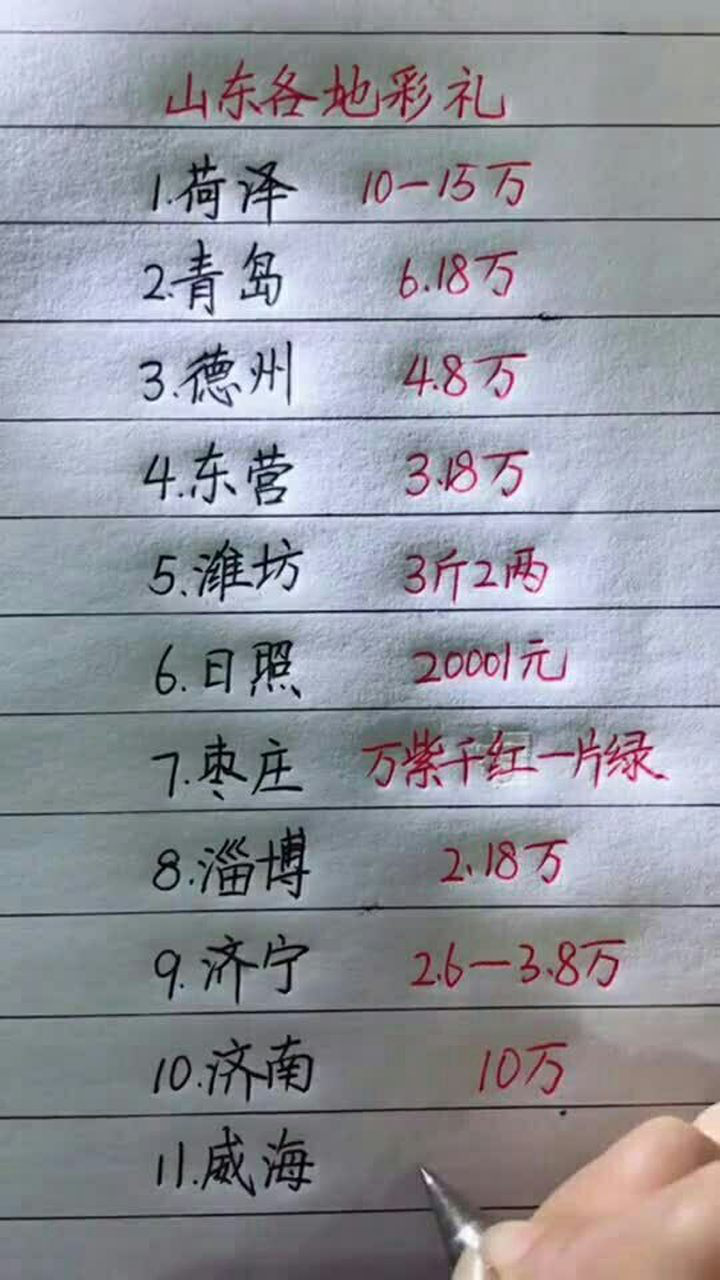 山东各地彩礼
1.荷泽 10—15万
2.青岛 6.18万
3.德州 4.8万
4.东营 3.18万
5.潍坊 3斤2两
6.日照 20001元
7.枣庄 万紫千红一片绿
8.淄博 2.18万
9.济宁 2.6—3.8万
10.济南 10万
11.威海